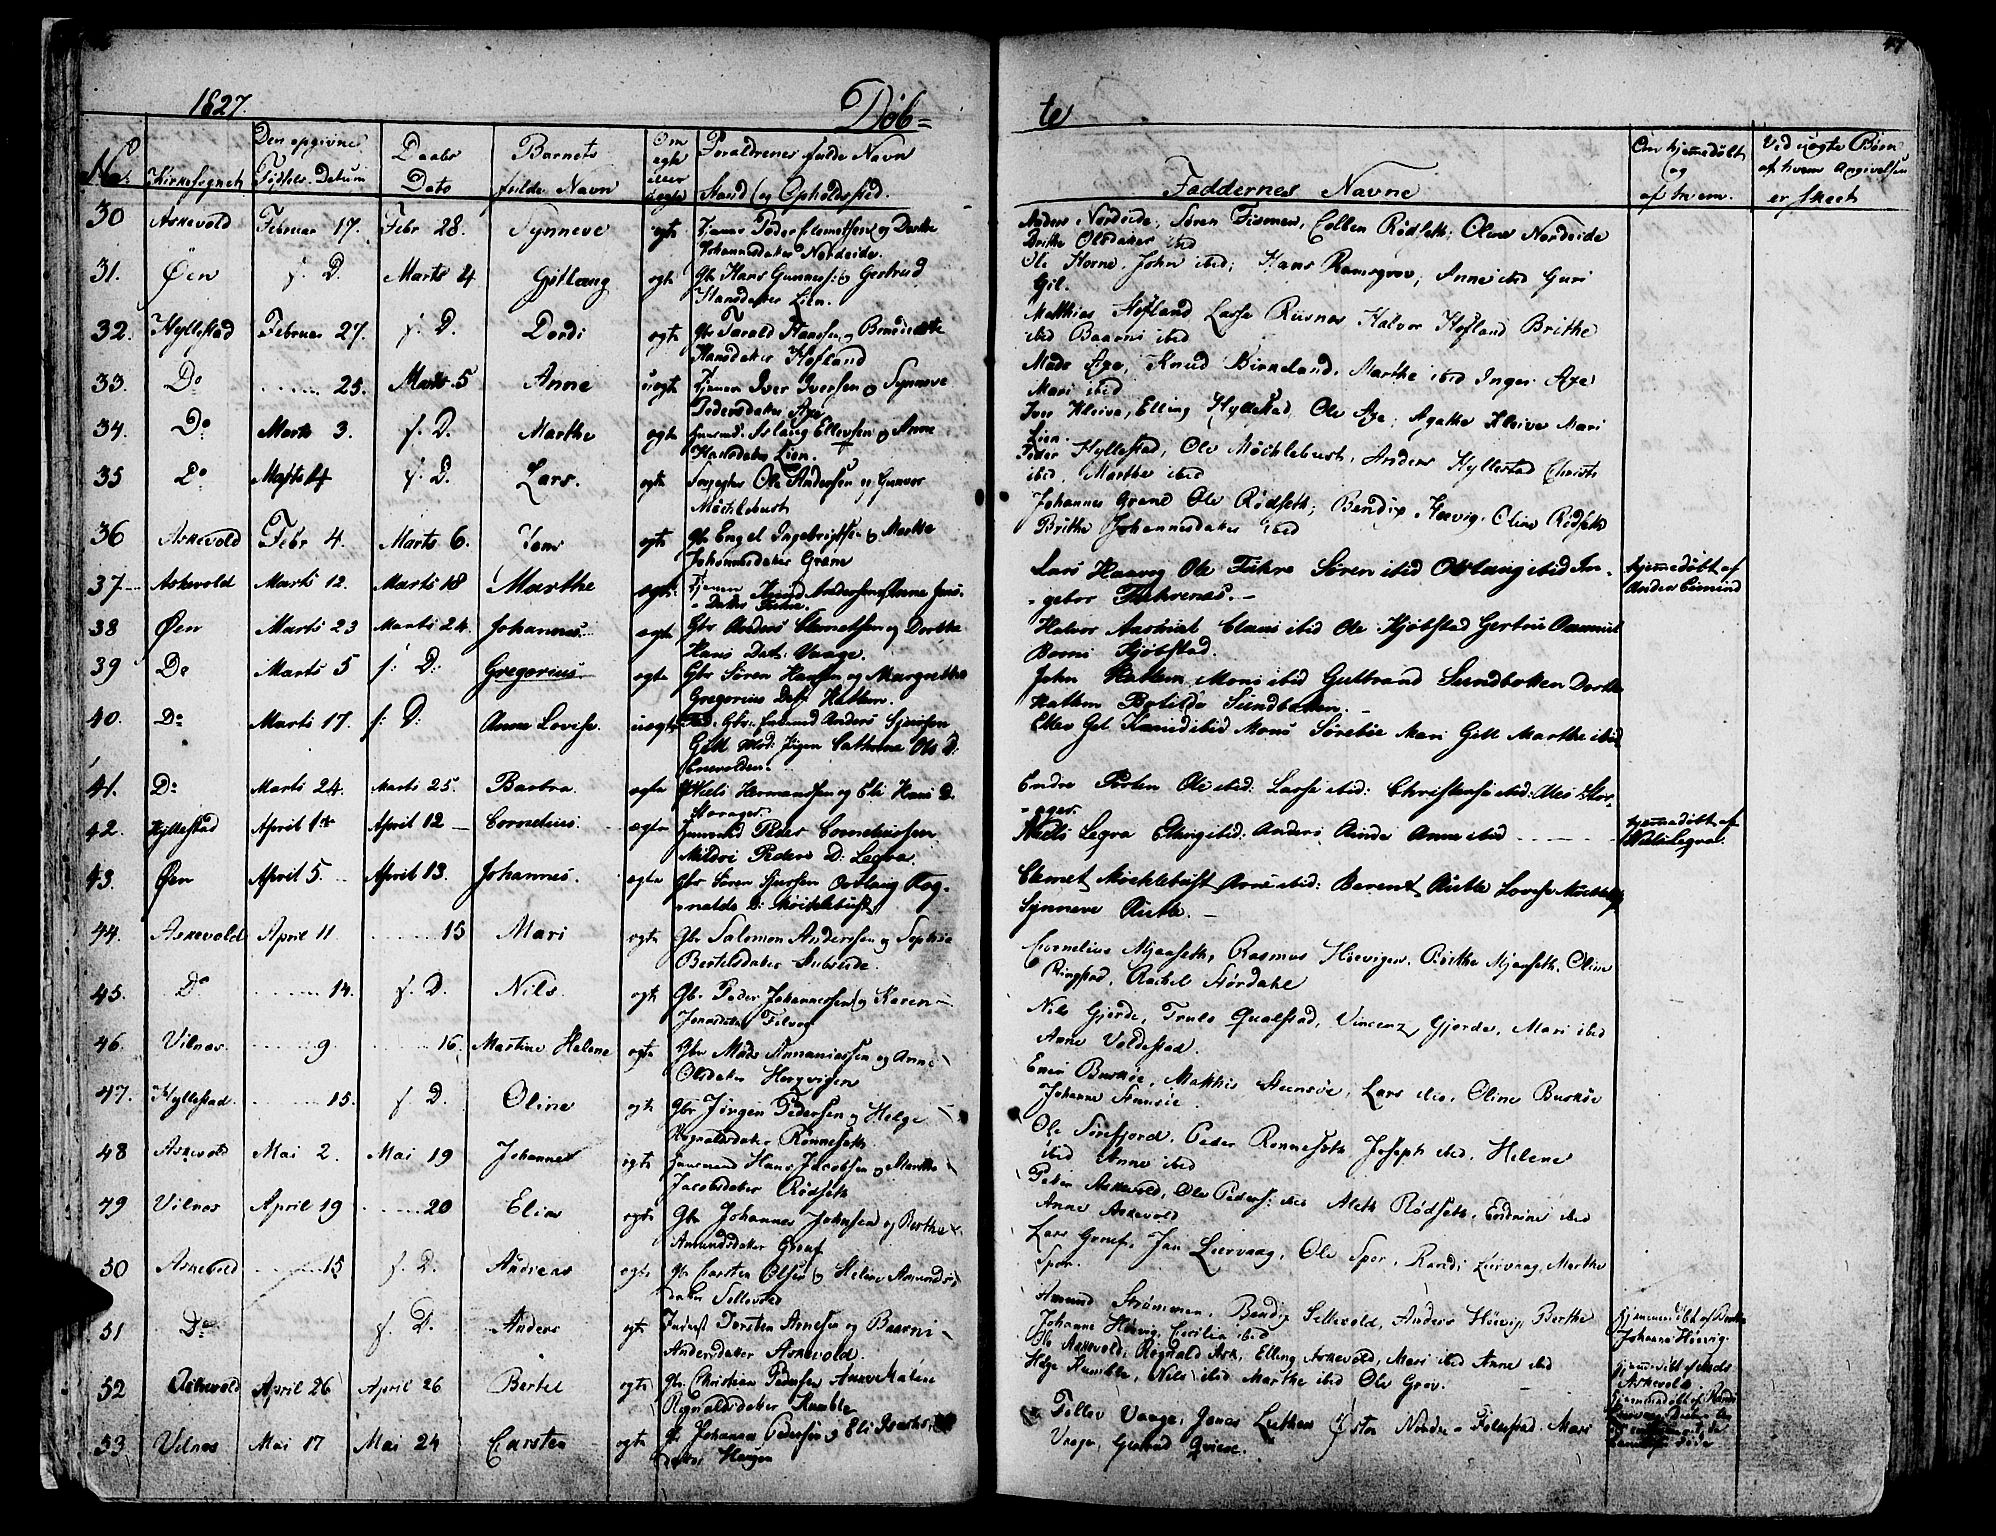 47
1827. Døb= te
No. Kirkesognet Den opgivne Fødsels Datum Daabs Dato Barnets fulde Navn Om ægte eller uægte Foraldrenes fulde Navn Stand og Opholdssted. Faddernes Navne Om hjemmedøbt og af hvem. Ved uægte Børn af hvem Angivelsen er skeet
30 Askevold Februar 17. Febr 28. Synneve ægte Peder Clemetsen og Dorthe Johannesdater Nordeide. Anders Nordeide, Søren Colben Rødseth, Oline Nordeide Brithe Olsdater ibid
31. Øen s. D. Marts 4 ægte Gbr Hans Gunners: og Gertrud Hansdatter Lien. Ole Horne, John ibid; Hans Ramsgrov, Anne ibid Guri Gil.
32. Hyllestad Februar 27. s. D. Dordi ægte Gbr Tarald Hansen og Hansdater Hofland Matthias Hofland Lasse Risnes Halvor Hofland Brithe ibid Baarni ibid
33. Do ..... 25. Marts 5 Anne uægte Iver Iversen og Synneve Pedersdater Axe Mads Axe, Knud Birkeland, Marthe ibid Inger Axe Mari ibid
34. Do Marts 3. s. D. Marthe ægte Aslaug Ellevsen og Anne Hansdater Lien. Iver Kleive, Elling Hyllestad, Ole Axe, Agathe Kleive Mari Lien
35 Do Marts 4 s. D. Lars. ægte Ole Andersen og Gunvor Møchlebust Peder Hyllestad, Ole Møchlebust, Anders Hyllestad Christi ibid, Marthe ibid
36 Askevold Febr 4. Marts 6. Jens ægte Gbr Engel Ingebrigtsen og Marthe Johannesdater Grane Johannes Grane Ole Rødseth; Bendix Høevig, Oline Rødseth Brithe Johannesdater ibid
37 Askevold Marts 12. Marts 18 Marthe ægte Knud Andersen Anne Jens- Dater Fuhre. Lars Haavig Ole Fuhre Søren ibid Oblaug ibid In- -gebor Fuhrenæs. hjemmedøbt af
38 Øen Marts 23 Marts 24. Johannes ægte Gbr Anders Clemetsen og Dorthe Hans Dat. Vaage. Halvor Aastvat Claus ibid Ole Kjøbstad Gertru Aammot Borni Kjøbstad.
39 Do Marts 5 s: D: Gregorius ægte Gbr Søren Hansen og Margrethe Gregorius Dat: Hatlem. John Hatlem Mons ibid Guttorm Sundbotten Dorthe Hatlem Botilde Sundbotten.
40. Do Marts 17. s: D: Anne Lovise. uægte Fad. Gbr: Anders Gill Mod: Pigen Cathrine Ols D: Ellev Gil ibid Mons Sørebøe Mari Gill Marthe ibid
41. Do Marts 24. Marts 25. Barbra. ægte Niels Hermanssen og Eli Hans D. Storager. Endre Ole ibid: Lasse ibid: Christense ibid: Stor- -ager.
42. Hyllestad April 1st April 12 Cornelius. ægte Peder Corneliussen Mildri Peders D: Legva. Niels Legva ibid: Anders Anne ibid hjemmedøbt af Niels Legva.
43. Øen April 5. April 13. Johannes. ægte Gbr Søren Sjursen Oblaug Rog- -nalds D: Møchlebust Clemet Møchlebust Arne ibid: Berent Lovise Synneve
44. Askevold April 11 ..... 15 Mari ægte Gbr Salomon Anderssen og Sophia Bertelsdater Stubseide. Cornelius Mjaaseth, Rasmus Høevigen, Brithe Mjaaseth, Oline Ringstad, Rachel Størdahl
45. Do ..... 14. s. D. Nils. ægte Gbr Peder Johannessen og Karen Jonasdater Nils Gjorde, Truls Qualstad, Vincenz Gjorde, Mari ibid Anne Valdestad.
46. Vilnæs ..... 9 ..... 16. Martine Helene ægte Gbr Mads Annaniassen og Anne Olsdater Hegvigen Buskøe, Mathis Steensøe, Lars ibid, Oline Buskøe Johanne Steensøe.
47. Hyllestad. ..... 15. s. D. Oline ægte Gbr Jørgen Pedersen og Helge Rognaldsdater Rønneseth. Ole Sørefjord, Peder Rønneseth, Joseph ibid, Helene ibid Anne ibid
48 Askevold Mai 2. Mai 19 Johannes ægte Huusmand Hans Jacobsen og Marthe Jacobsdater Rødseth Peter Askevold, Ole Peders: ibid Aleth Rødseth, Endrine ibid Anne Askevold
49 Vilnæs April 19 ..... 20 Elias ægte Gbr Johannes Johnsen og Berthe Amundsdater Gronf Lars Gronf, Jan Liervaag, Ole Spor, Randi Liervaag, Marthe Spor.
50 Askevold ..... 15 s. D. Andreas ægte Gbr Carsten Olsen og Helene Amunds- dater Sellevold Amund Strømmen, Bendix Sellevold, Anders Høevig Berthe Johanne Høevig, Cecilia ibid hjemmedøbt af Johanne Høevig.
51 Do s. D. Anders ægte Torsten Arnesen og Baarni Andersdater Askevold. Ole Askevold, Rognald Ask, Elling Askevold, Mari ibid Anne ibid hjemmedøbt af Askevold
52 Askevold April 26 April 26 Bertel ægte Gbr. Christian Pedersen Anne Malene Rognaldsdater Humble Helge Humble, Nils ibid Marthe ibid Ole Grov. hjemmedøbt af
53 Vilnæs Mai 17 Mai 24 Carsten ægte Gb. Johannes Pedersen og Eli dater Haugen Tollev Vaage, Jonas Øston Nordre Follestad, Mari Vaage,